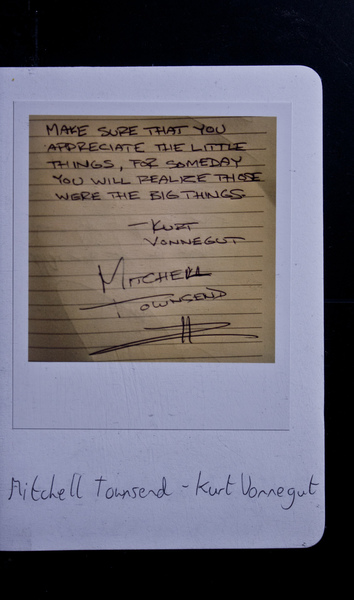 MAKE SURE THAT YOU
APPRECIATE THE LITTLE
THINGS, FOR SOMEDAY
YOU WILL REALIZE THOSE
WERE THE BIG THINGS.
-KURT
VONNEGUT
MITCHELL
TOWNSEND
Mitchell Townsend - Kurt Vonnegut